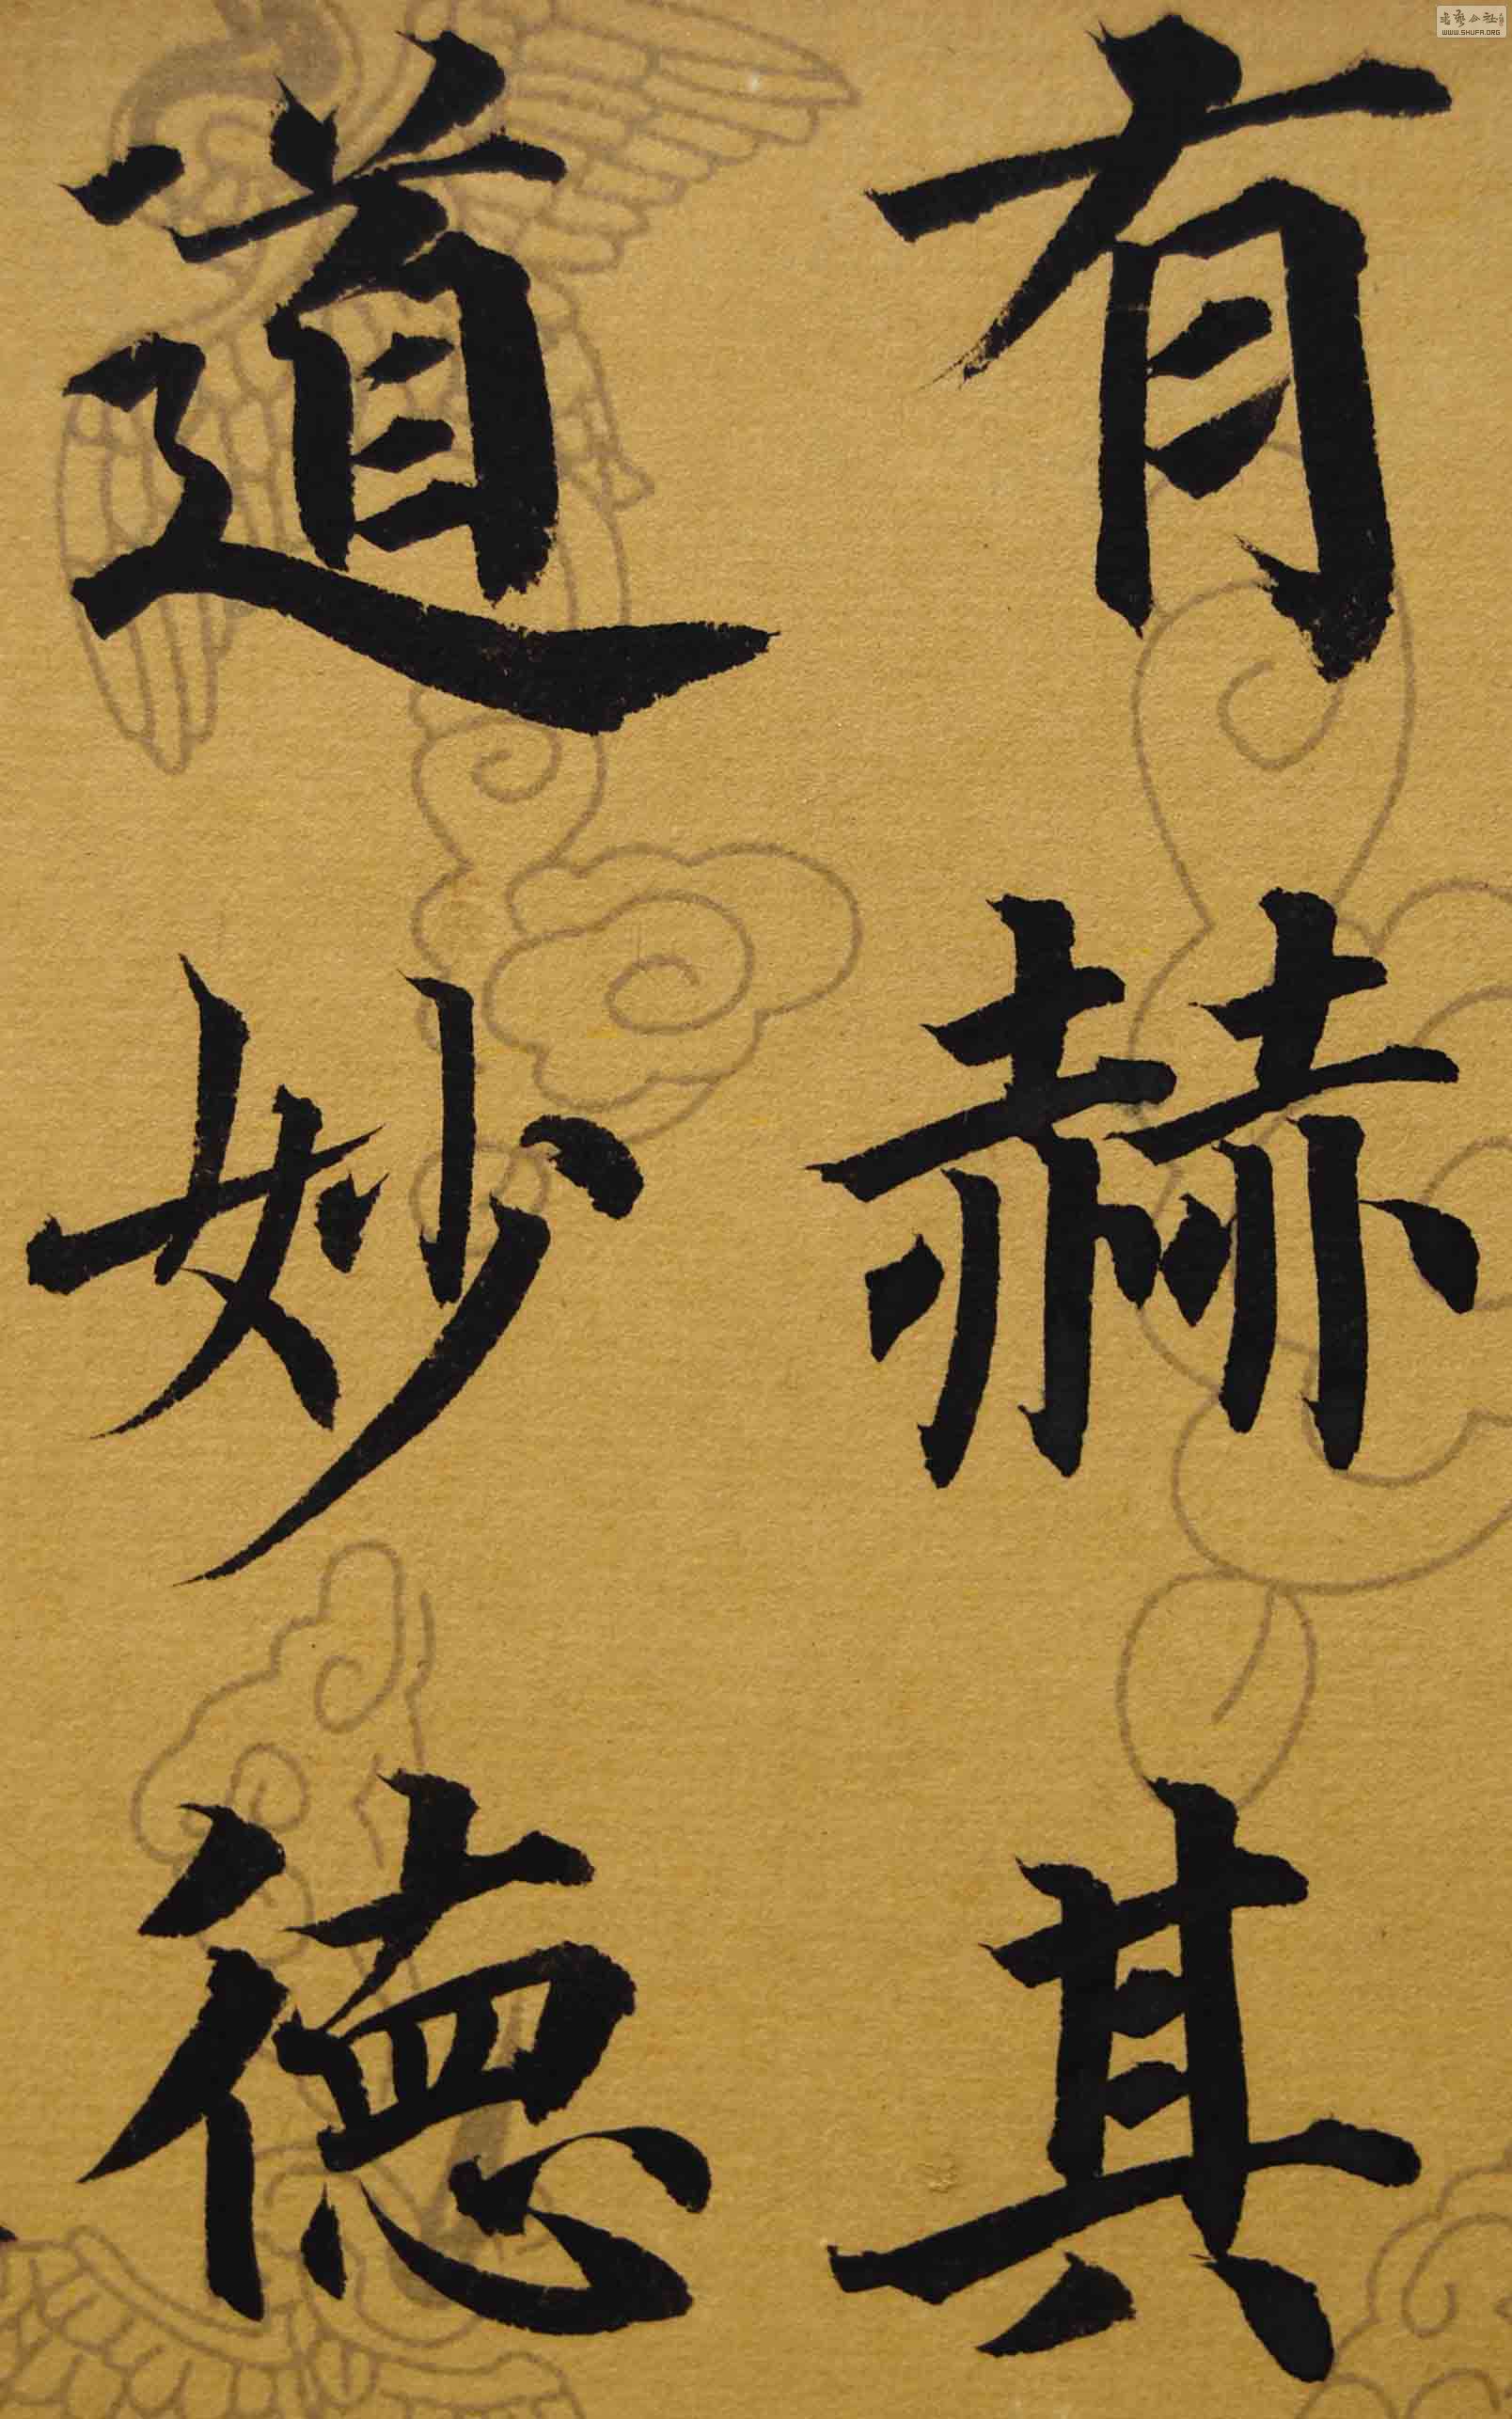 有赫其
道妙德
WWW.SHUFA.ORG